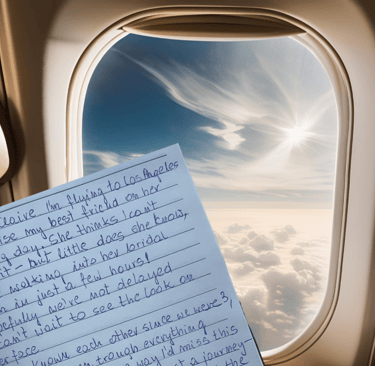 Claire I'm flying to Los Angeles
my best friend on her
day. She thinks I can't
it – but little does she know,
walking into her bridal
in just a few hours!
we're not delayed
can't wait to see the look on
known each other since we were 3,
trough everything
way I'd miss this
a journey–
the